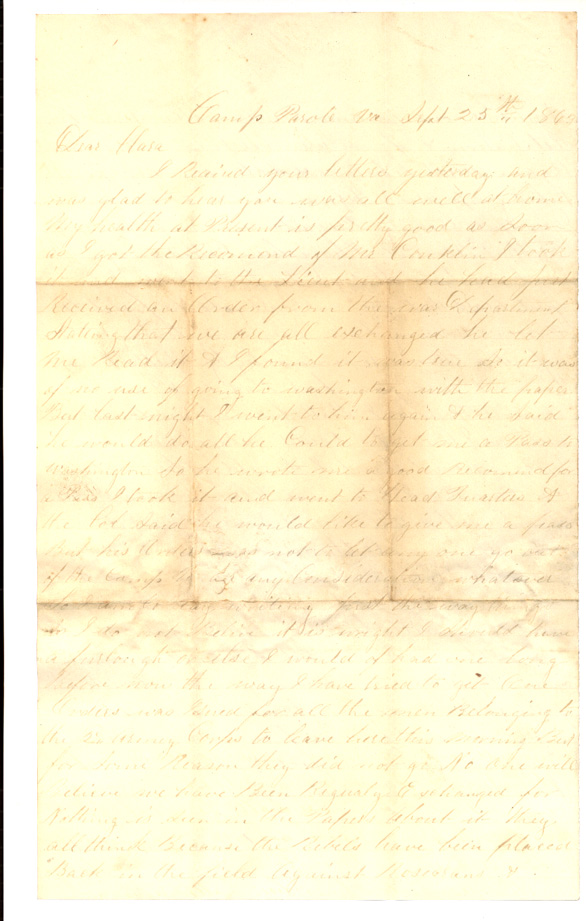 Camp Parole Va Sept 25th 186
Dear
I Recived your letters yesterday and
was glad to hear you were all well at home
My health at Present is pretty good as Soon
as I got the Recomend of Mr Conklin I took
it and went to the Lieut and he had just
Received an Order from the war Department
Stating that we are all exchanged he let
me Read it & I found it was true so it was
of no use of going to washington with the paper
But last night I went to him again & he said
he would do all he Could to get me a Pass to
washington So he wrote me a good Recomend for
a Pass I took it and went to Head Quarters &
the Col said he would like to give me a pass
But his Orders was not to let any one go out
of the Camp any Consideration whatever
the way
I do not Belive it is I should have
a furlough or else I would of had one long
before now the way I have tried to get One
Orders was Issued for all the men Belonging to
the Army Corps to leave here this morning But
for Some Reason they did not go No one will
belive we have Been Regularly Exchanged for
Nothing is seen in the Papers about it they
all think Because the Rebels have been placed
Back in the field Against Rosecrans &